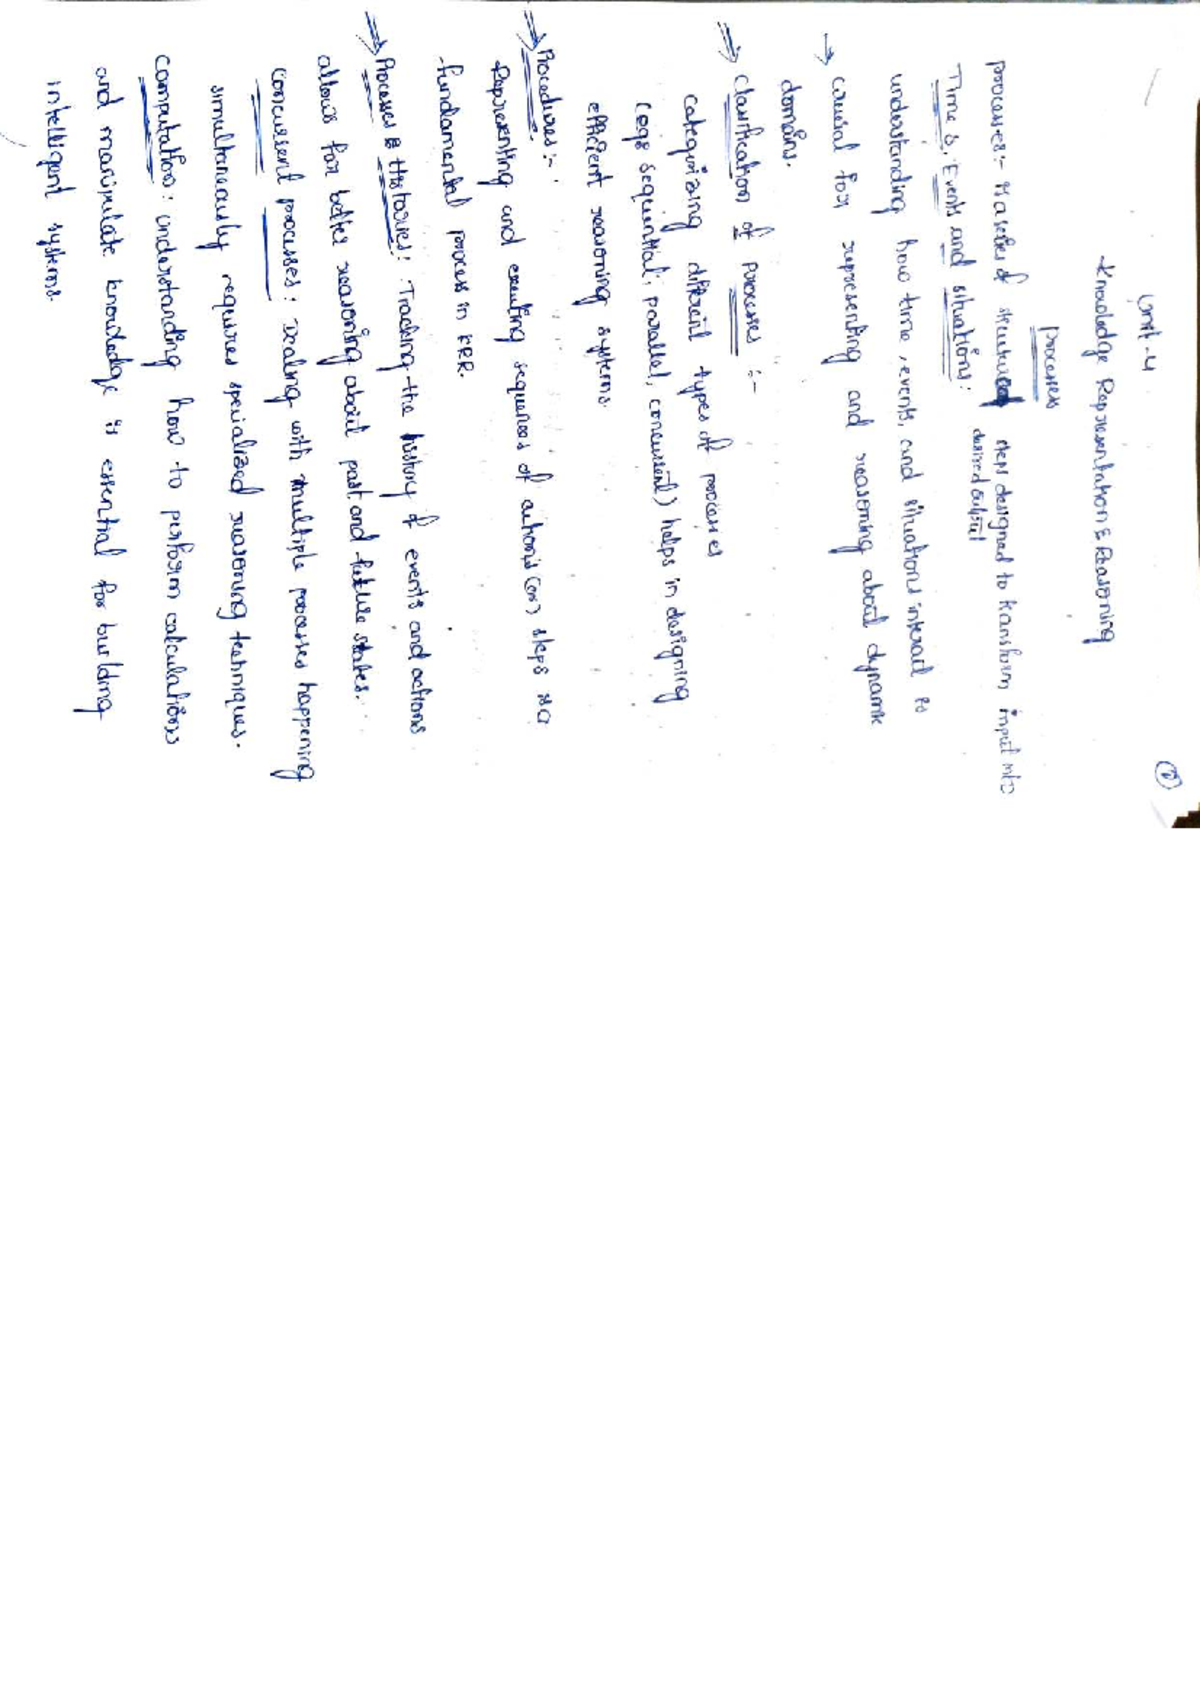 Unit-4
Knowledge Representation & Reasoning
processes
processes:- is a series of steps designed to transform input into
desired output
Time s, Events and situations:
understanding how time, events, and situations interact is
crucial for representing and reasoning about dynamic
domains.
⇒ Clasification of Processes :-
categorizing different types of processes
(eg: sequential, parallel, concurrent) helps in designing
efficient reasoning systems.
⇒ Procedures:-
Representing and executing sequences of actions (or) steps is a
fundamental process in KRR.
⇒ Processes & Histories: Tracking the history of events and actions
allows for better reasoning about past and future states.
Concurrent processes: Dealing with multiple processes happening
simultaneously requires specialized reasoning techniques.
Computation: understanding how to perform calculations
and manipulate knowledge is essential for building
intelligent systems.